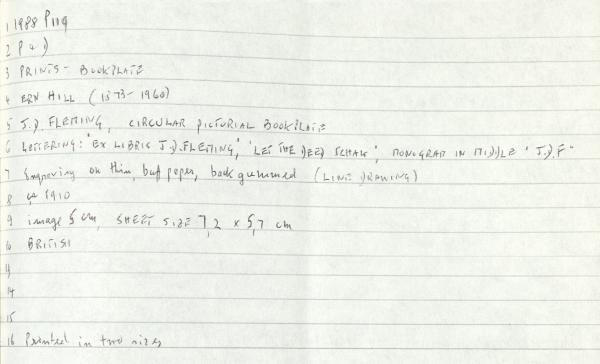 1 1988 P119
2 P & D
3 PRINTS - BOOKPLATE
4 ERN HILL (1873-1960)
5 J.D. FLEMING, CIRCULAR PICTORIAL BOOKPLATE
6 LETTERING: "EX LIBRIS J.D.FLEMING," "LET THE DEED SCHAW", MONOGRAM IN MIDDLE "J.D.F"
7 Engraving on thin, buff paper, back gummed (LINE DRAWING)
8 ca 1910
9 image 5 cm, SHEET SIZE 7,2 x 5,7 cm
10 BRITISH
14
15
16 Printed in two sizes